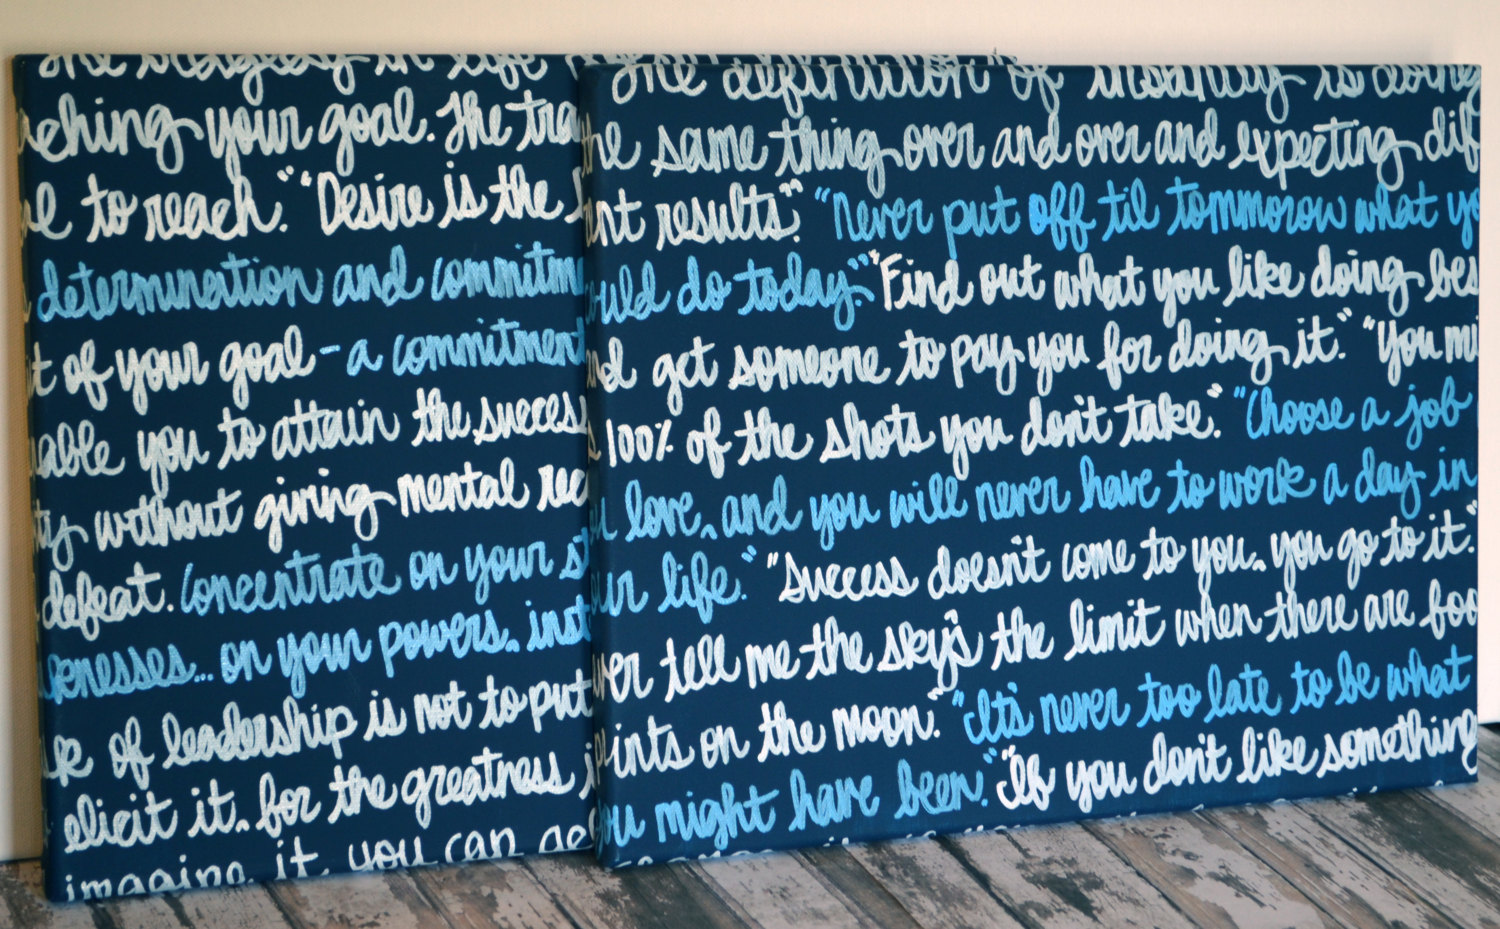 The tragedy in life
ching your goal. The tra
al to reach." "Desire is the
determination and commitm
t of your goal - a commitment
nable you to attain the success
ty without giving mental rec
defeat. Concentrate on your st
knesses... on your powers, inst
k of leadership is not to put
elicit it, for the greatness i
imagine it, you can ac
The definition of insanity is doing
the same thing over and over and expecting dif
nt results." "Never put off til tommorow what yo
ould do today." "Find out what you like doing bes
nd get someone to pay you for doing it." "You mi
s 100% of the shots you don't take." "Choose a job
u love, and you will never have to work a day in
our life." "Success doesn't come to you, you go to it."
ver tell me the sky's the limit when there are foo
pints on the moon." "It's never too late to be what
ou might have been." "If you don't like something